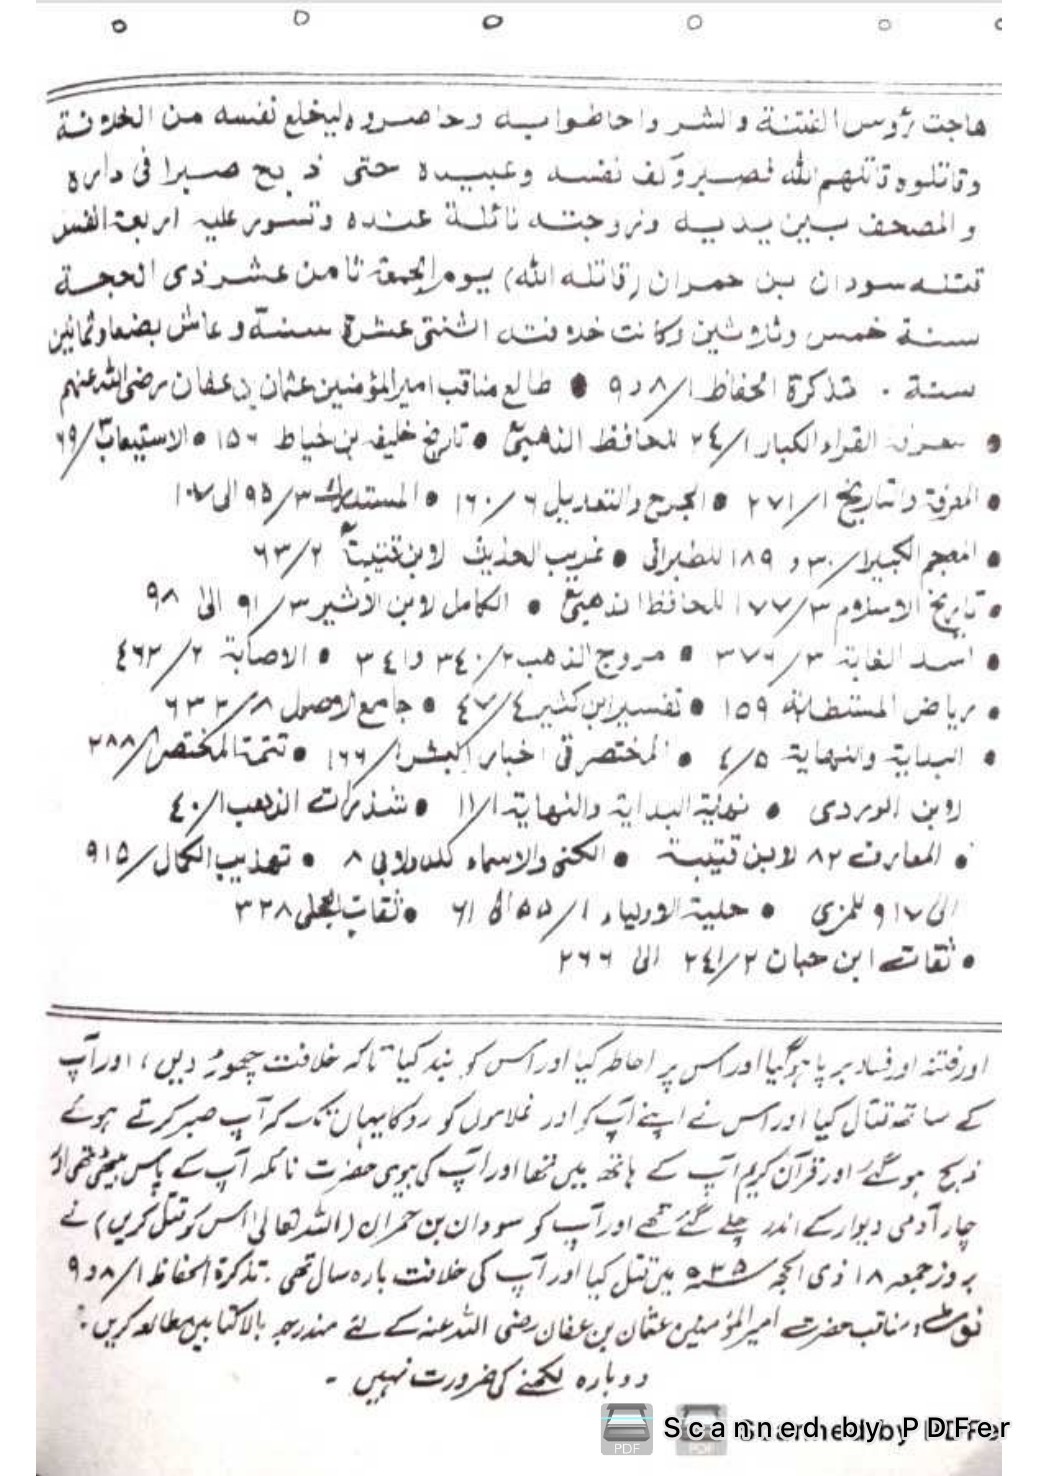 هاجت رؤس الفتنة والشر واحاطوا به وحاصروه ليخلع نفسه من الخلافة
وقاتلوه قاتلهم الله فصبر وكف نفسه وعبيده حتى ذبح صبرا فى داره
والمصحف بين يديه وزوجته نائلة عنده وتسور عليه اربعة انفس
قتله سودان بن حمران (قاتله الله) يوم الجمعة ثامن عشر ذى الحجة
سنة خمس وثلاثين وكانت خلافته اثنتى عشرة سنة وعاش بضعا وثمانين
سنة ۰ تذكرة الحفاظ ١/٨ و٩ ● طالع مناقب امير المؤمنين عثمان بن عفان رضى الله عنهم
● معرفة القراء الكبار ٢٤/١ للحافظ الذهبىؒ ● تاريخ خليفه بن خياط ١٥٦ ● الاستيعاب ٦٩/
● المعرفة والتاريخ ٢٧١/١ ● الجرح والتعديل ١٦٠/٦ ● المستدرك ٩٥/٣ الى ١٠٧
● المعجم الكبير ٣٠/١ و ١٨٩ للطبرانى ● غريب الحديث لابن قتيبةؒ ٦٣/٢
● تاريخ الاسلام ١٧٧/٣ للحافظ الذهبىؒ ● الكامل لابن الاثير ٩١/٣ الى ٩٨
● اسد الغابة ٣٧٦/٣ ● مروج الذهب ٣٤٠/٢ و ٣٤١ ● الاصابة ٤٦٢/٢
● رياض المستطابة ١٥٩ ● تفسير ابن كثير ٤٧/٤ ● جامع الاصول ٦٣٢/٨
● البداية والنهاية ٤/٥ ● المختصر فى اخبار البشر ١٦٦/١ ● تتمة المختصر ٢٨٨/١
لابن الوردى ● نهاية البداية والنهاية ١١/١ ● شذرات الذهب ٤٠/١
● المعارف ٨٢ لابن قتيبة ● الكنى والاسماء للدولابى ٨ ● تهذيب الكمال/٩١٥
الى ٩١٧ للمزى ● حلية الاولياء ٥٥/١ الى ٦١ ● ثقات العجلى ٣٢٨
● ثقات ابن حبان ٢٤١/٢ الى ٢٦٦
اور فتنہ اور فساد برپا ہوگیا اور اس پر احاطہ کیا اور اس کو بند کیا تاکہ خلافت چھوڑ دیں، اور آپ
کے ساتھ قتال کیا اور اس نے اپنے آپ کو اور غلاموں کو روکا یہاں تک کہ آپ صبر کرتے ہوئے
ذبح ہوگئے اور قرآن کریم آپ کے ہاتھ میں تھا اور آپ کی بیوی حضرت نائلہ آپ کے پاس بیٹھی تھی اور
چار آدمی دیوار کے اندر چلے گئے تھے اور آپ کو سودان بن حمران (اللہ تعالیٰ اس کو قتل کریں) نے
بروز جمعہ ۱۸ ذی الحجہ ۳۵ھ میں قتل کیا اور آپ کی خلافت بارہ سال تھی. تذكرة الحفاظ ١/٨ و٩
نوٹ: مناقب حضرت امیر المؤمنین عثمان بن عفان رضی اللہ عنہ کے لئے مندرجہ بالا کتابیں مطالعہ کریں.
دوبارہ لکھنے کی ضرورت نہیں -
Scanned by PDFer